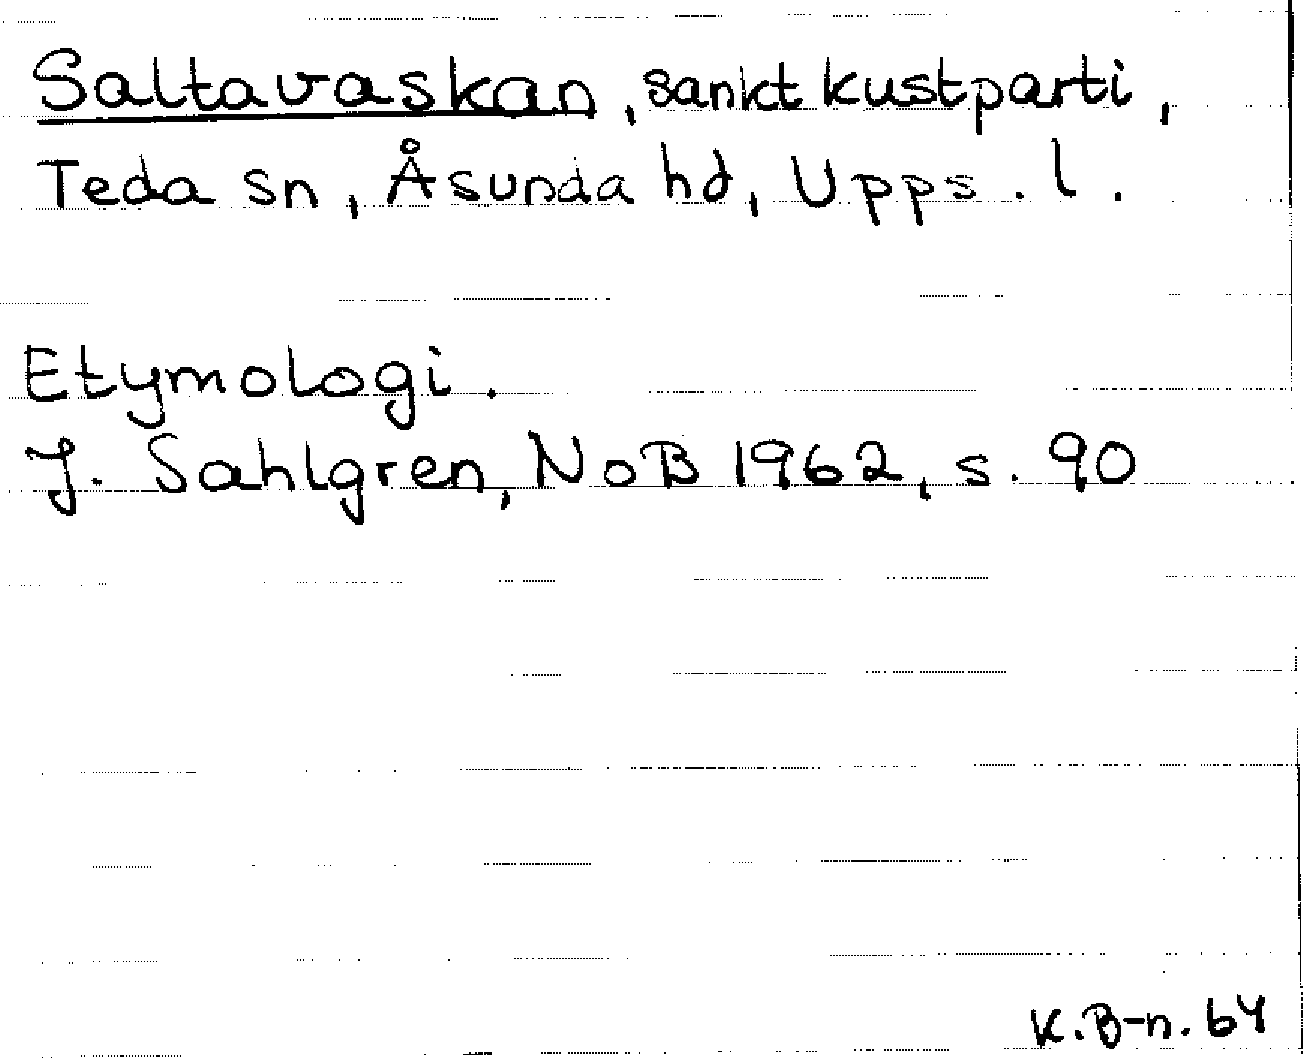 Saltavaskan, sankt kustparti,
Teda sn, Åsunda hd, Upps. l.
Etymologi.
J. Sahlgren, NoB 1962, s. 90
K.B-n. 64